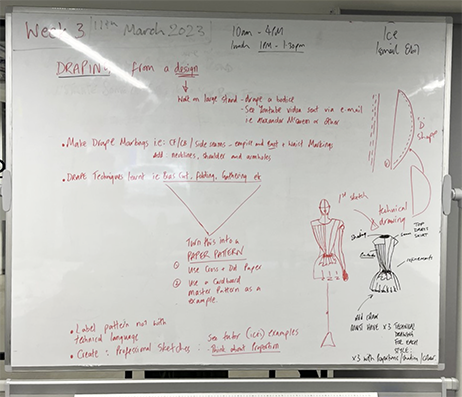 Week 3 | 11th March 2023
10am - 4pm
lunch 1pm - 1:30pm
Ice
DRAPING from a design
Work on large stand - drape a bodice
- See Youtube video sent via e-mail
ie Alexander McQueen or other
• Make Drape Markings ie: CF/CB/side seams - armpill and bust + waist Markings
add: necklines, shoulder and armholes
• DRAPE Techniques learnt ie Bias Cut, Folding, Gathering etc
Turn this into a
PAPER PATTERN
① Use Cross + Dot Paper
② Use a Cardboard
master Pattern as a
example.
• Label pattern now with
technical language
See tutor (ices) examples
• Create : Professional Sketches :
- Think about Proportion
"D" shape
1st sketch
technical
drawing
Shading
refinements
add colour
MUST HAVE x3 TECHNICAL
DRAWINGS
FOR EACH
STYLE.
x3 with Proportions/shading/colour